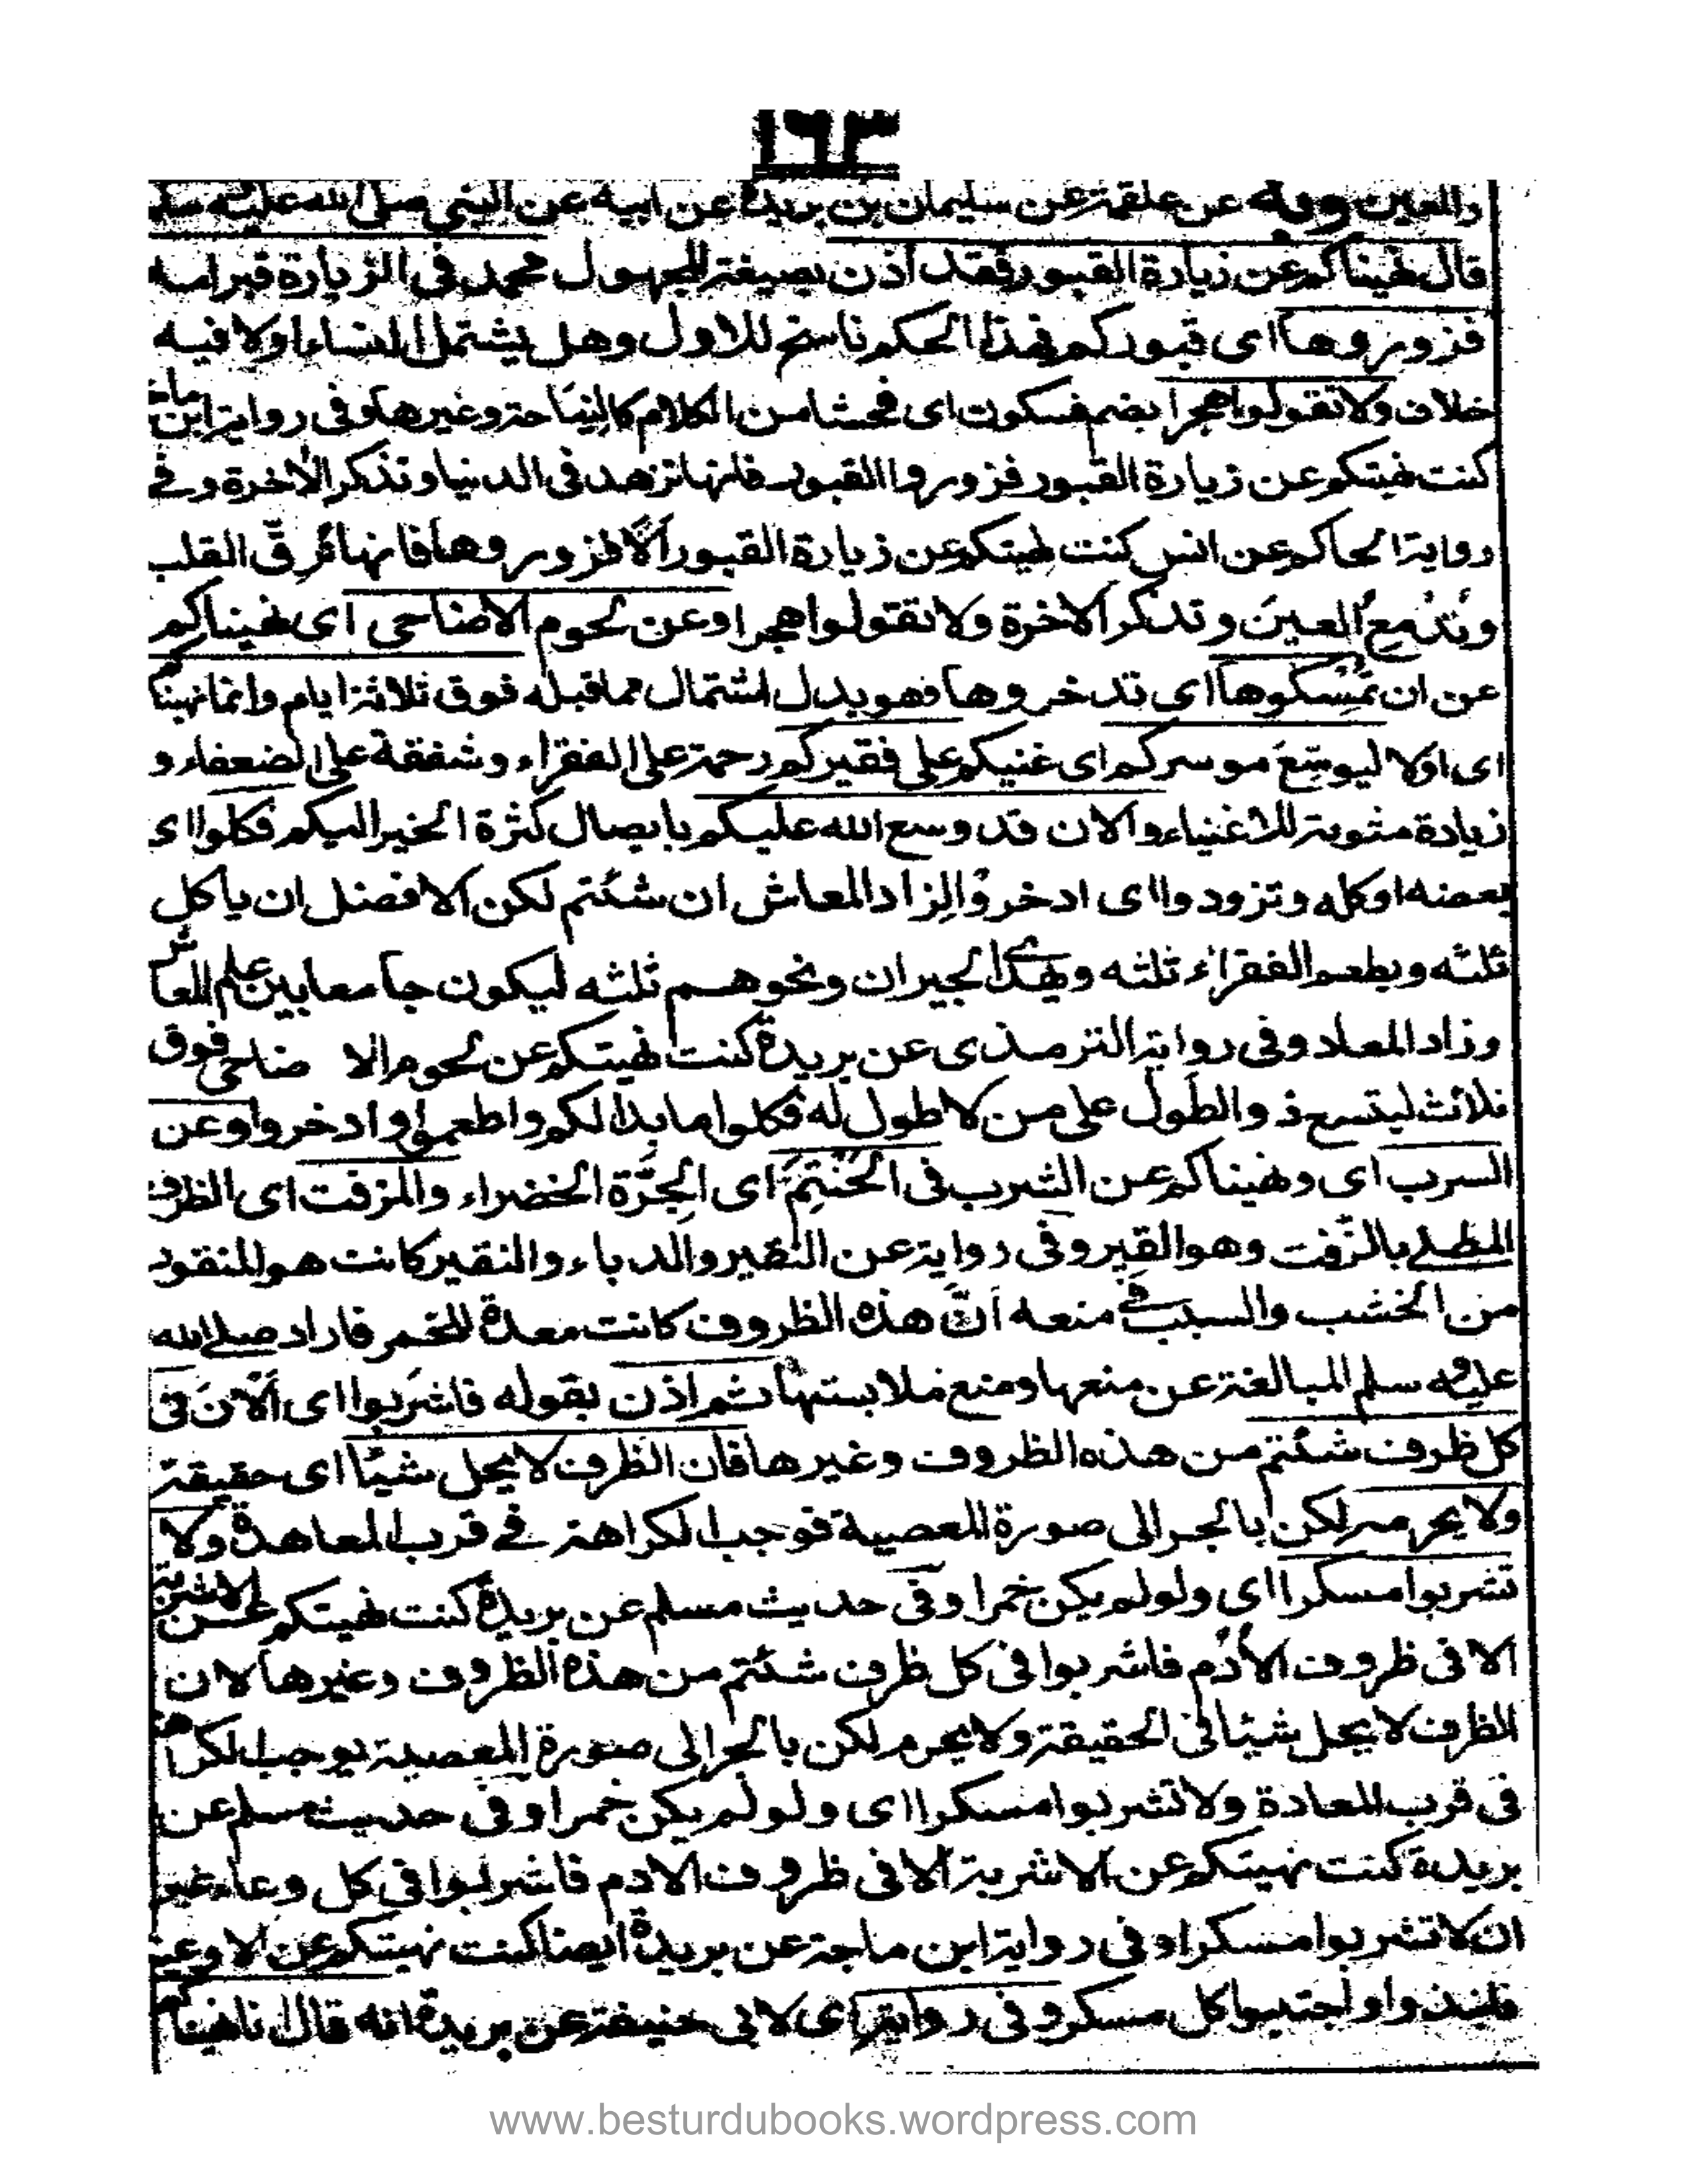 ١٦٣
والمعين وبه عن علقمة عن سليمان بن بريدة عن ابيه عن النبى صلى الله عليه سلم
قال نهيناكم عن زيارة القبور فقد اذن بصيغة المجهول محمد فى الزيارة قبرامه
فزوروها اى قبوركم فهذا الحكم ناسخ للاول وهل يشتمل النساء اولا فيه
خلاف ولا تقولوا هجرا بضم فسكون اى فحشا من الكلام كالنياحة وغيرها وفى رواية ابن ماجة
كنت نهيتكم عن زيارة القبور فزوروا القبور فانها تزهد فى الدنيا وتذكر الاخرة وفے
رواية الحاكم عن انس كنت نهيتكم عن زيارة القبور اَلَا فزوروها فانها تُرِقّ القلب
وتُدْمِعُ العينَ وتذكر الاخرة ولا تقولوا هجرا وعن لحوم الاضاحى اى نهيناكم
عن ان تُمْسِكوها اى تدخروها فهو بدل اشتمال مما قبله فوق ثلاثة ايام وانما نهيناكم
اى اولا ليوسِّعَ موسركم اى غنيكم على فقيركم رحمة على الفقراء وشفقة على الضعفاء و
زيادة مثوبة للاغنياء والان قد وسع الله عليكم بايصال كثرة الخير اليكم فكلوا اى
بعضه اوكله وتزودوا اى ادخروا لزاد المعاش ان شئتم لكن الافضل ان ياكل
ثلثه ويطعم الفقراء ثلثه ويهدى الجيران ونحوهم ثلثه ليكون جامعا بين علم المعاش
وزاد المعاد وفى رواية الترمذى عن بريدة كنت نهيتكم عن لحوم الا ضاحى فوق
ثلاث ليتسع ذو الطَول على من لا طول له فكلوا ما بدا لكم واطعموا وادخروا وعن
السرب اى ونهيناكم عن الشرب فى الحَنْتِمَ اى الجَرَّة الخضراء والمزفت اى الظرف
المطلے بالزِّفت وهو القير وفى رواية عن النقير والدباء والنقير كانت هو المنقور
من الخشب والسبب فے منعه اَنَّ هذه الظروف كانت معدة للخمر فاراد صلے الله
عليه سلم المبالغة عن منعها ومنع ملابستها ثم اذن بقوله فاشرَبوا اى اَلْاٰنَ فى
كل ظرف شئتم من هذه الظروف وغيرها فان الظرف لا يحل شيئا اى حقيقة
ولا يحرمه لكن بالجر الى صورة المعصية توجب الكراهة فے قرب المعاهدة ولا
تشربوا مسكرا اى ولو لم يكن خمرا وفى حديث مسلم عن بريدة كنت نهيتكم عن الاشربة
الا فى ظروف الاُدُم فاشربوا فى كل ظرف شئتم من هذه الظروف وغيرها لان
الظرف لا يحل شيئا فى الحقيقة ولا يحرم لكن بالجر الى صورة المعصية يوجب الكراهة
فى قرب المعادة ولا تشربوا مسكرا اى ولو لم يكن خمرا وفى حديث مسلم عن
بريدة كنت نهيتكم عن الاشربة الا فى ظروف الادم فاشربوا فى كل وعاء غير
ان لا تشربوا مسكرا وفى رواية ابن ماجة عن بريدة ايضا كنت نهيتكم عن الاوعية
فانبذوا واجتنبوا كل مسكر وفى رواية اى لابى حنيفة عن بريدة انه قال نا نهيناكم
www.besturdubooks.wordpress.com